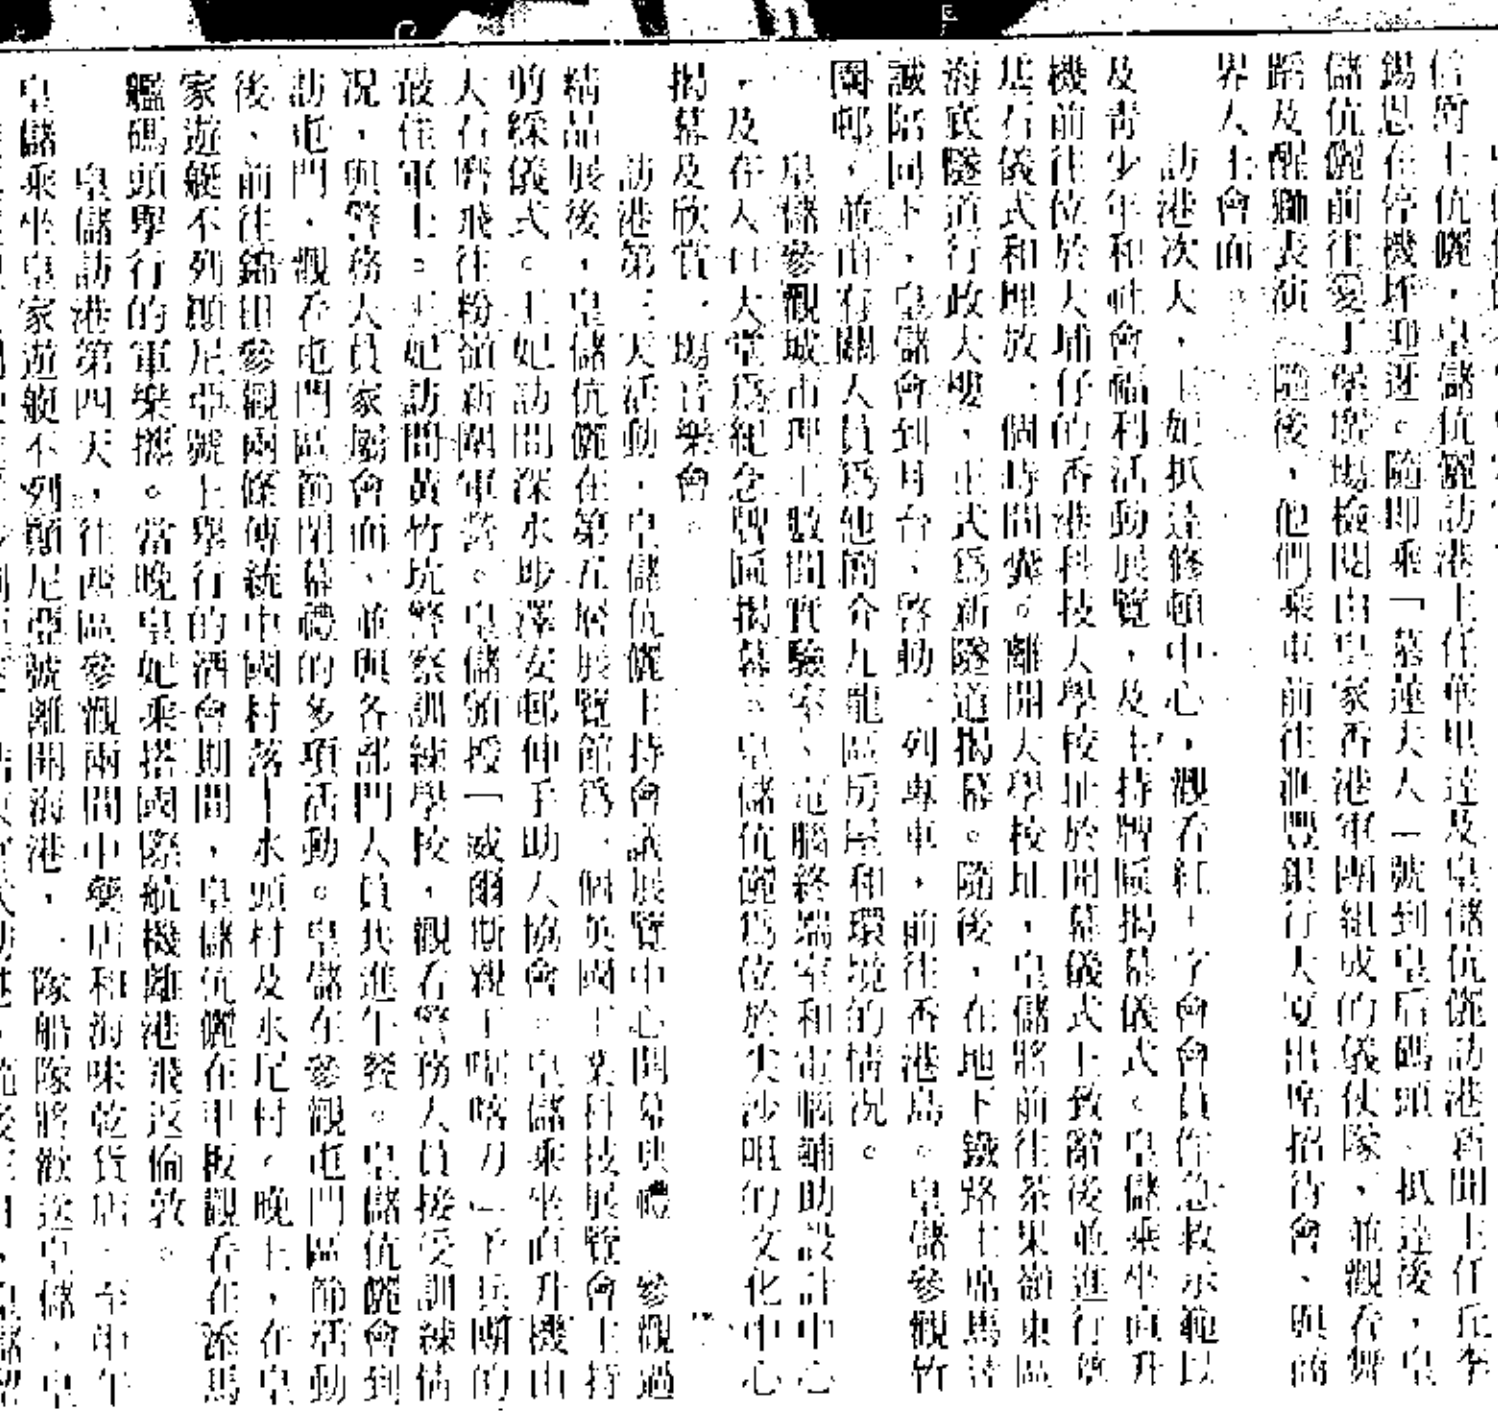 信爵士伉儷，皇儲伉儷訪港主任華里達及皇儲伉儷訪港新聞主任丘李
錫恩在停機坪迎迓。隨即乘「慕蓮夫人」號到皇后碼頭、抵達後，皇
儲伉儷前往愛丁堡廣場檢閱由皇家香港軍團組成的儀仗隊、並觀看舞
蹈及醒獅表演。隨後，他們乘車前往滙豐銀行大廈出席招待會、與商
界人士會面。
訪港次天，王妃抵達修頓中心，觀看紅十字會會員作急救示範以
及青少年和社會福利活動展覽，及主持牌匾揭幕儀式。皇儲乘坐直升
機前往位於大埔仔的香港科技大學校址於開幕儀式上致辭後並進行奠
基石儀式和埋放一個時間囊。離開大學校址，皇儲將前往茶果嶺東區
海底隧道行政大樓，正式為新隧道揭幕。隨後，在地下鐵路主席馬
誠陪同下，皇儲會到月台、啓動一列專車，前往香港島。皇儲參觀竹
園邨，並由有關人員爲他簡介九龍區房屋和環境的情況。
皇儲參觀城市理工數間實驗室、電腦終端室和電腦輔助設計中心
，及在入口大堂爲紀念牌匾揭幕。皇儲伉儷爲位於尖沙咀的文化中心
揭幕及欣賞一場音樂會。
訪港第三天活動，皇儲伉儷主持會議展覽中心開幕典禮 參觀過
精品展後，皇儲伉儷在第五層展覽館爲一個英國工業科技展覽會主持
剪綵儀式。王妃訪問深水埗澤安邨伸手助人協會。皇儲乘坐直升機由
大石磨飛往粉嶺新圍軍營。皇儲頒授「威爾斯親王啹喀刀」予兵團的
最佳軍士。王妃訪問黃竹坑警察訓練學校，觀看警務人員接受訓練情
況，與警務人員家屬會面、並與各部門人員共進午餐。皇儲伉儷會到
訪屯門，觀看屯門區節閉幕禮的多項活動。皇儲在參觀屯門區節活動
後、前往錦田參觀兩條傳統中國村落—水頭村及水尾村。晚上，在皇
家遊艇不列顛尼亞號上舉行的酒會期間，皇儲伉儷在甲板觀看在添馬
艦碼頭舉行的軍樂 。當晚皇妃乘搭國際航機離港飛返倫敦。
皇儲訪港第四天，往西區參觀兩間中藥店和海味乾貨店。至中午
皇儲乘坐皇家遊艇不列顛尼亞號離開海港，一隊船隊將歡送皇儲，皇